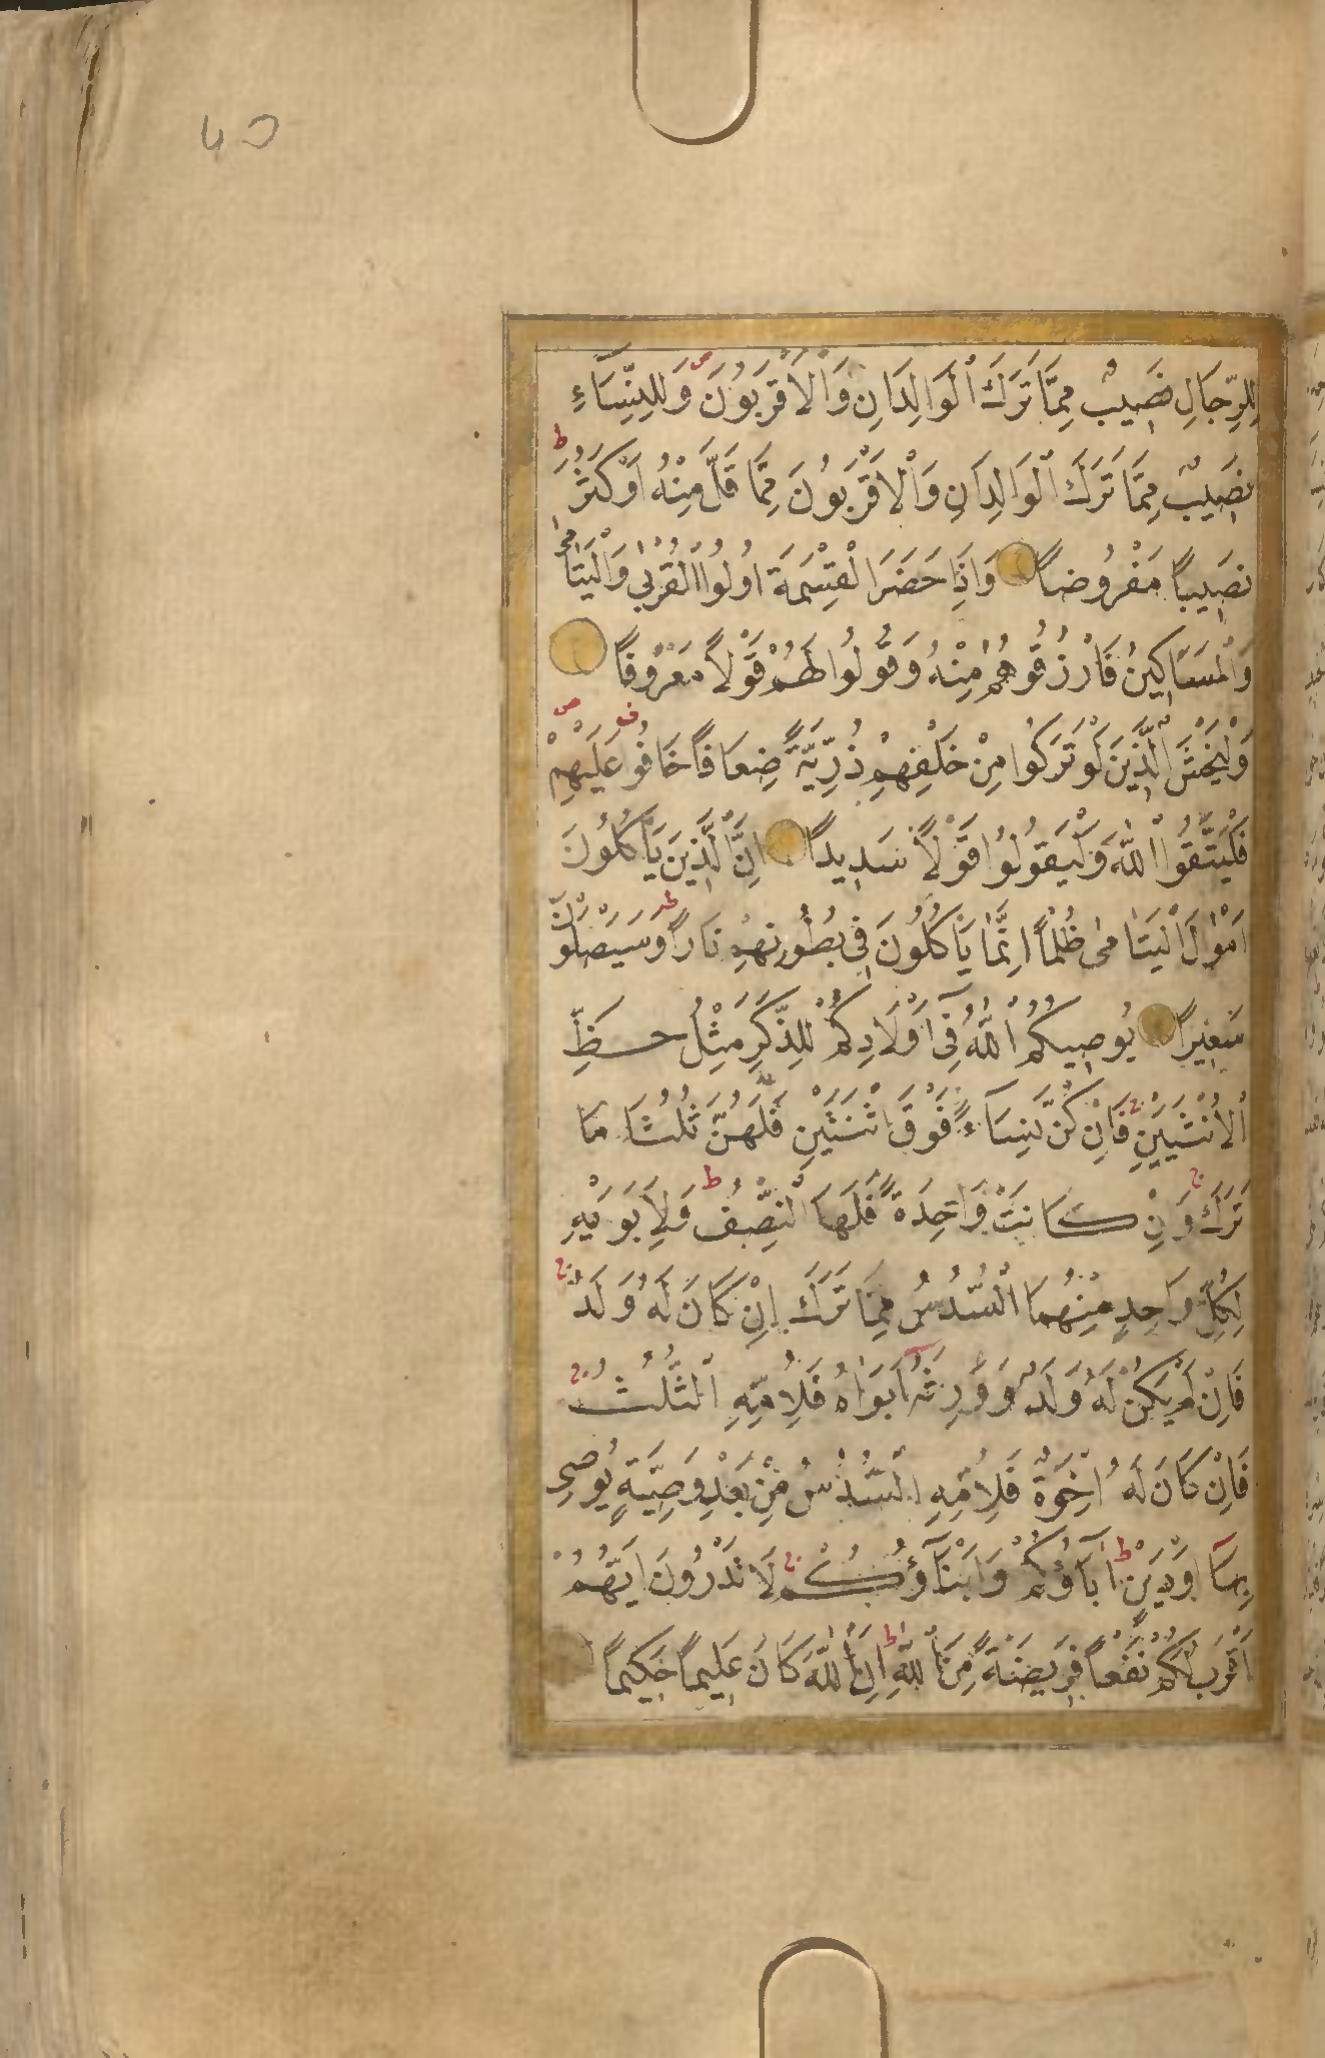 40
لِلرِّجَالِ نَصِيبٌ مِمَّا تَرَكَ الْوَالِدَانِ وَالْاَقْرَبُونَ ص وَلِلنِّسَاءِ
نَصِيبٌ مِمَّا تَرَكَ الْوَالِدَانِ وَالْاَقْرَبُونَ مِمَّا قَلَّ مِنْهُ اَوْ كَثُرَ ط
نَصِيبًا مَفْرُوضًا وَاِذَا حَضَرَ الْقِسْمَةَ اُولُوا الْقُرْبٰى وَالْيَتَامٰى
وَالْمَسَاكِينُ فَارْزُقُوهُمْ مِنْهُ وَقُولُوا لَهُمْ قَوْلًا مَعْرُوفًا
وَلْيَخْشَ الَّذِينَ لَوْ تَرَكُوا مِنْ خَلْفِهِمْ ذُرِّيَّةً ضِعَافًا خَافُوا عَلَيْهِمْ ص
فَلْيَتَّقُوا اللّٰهَ وَلْيَقُولُوا قَوْلًا سَدِيدًا اِنَّ الَّذِينَ يَأْكُلُونَ
اَمْوَالَ الْيَتَامٰى ظُلْمًا اِنَّمَا يَأْكُلُونَ فِى بُطُونِهِمْ نَارًا ط وَسَيَصْلَوْنَ
سَعِيرًا يُوصِيكُمُ اللّٰهُ فِٓى اَوْلَادِكُمْ لِلذَّكَرِ مِثْلُ حَظِّ
الْاُنْثَيَيْنِ ج فَاِنْ كُنَّ نِسَاءً فَوْقَ اثْنَتَيْنِ فَلَهُنَّ ثُلُثَا مَا
تَرَكَ ج وَاِنْ كَانَتْ وَاحِدَةً فَلَهَا النِّصْفُ ط وَلِاَبَوَيْهِ
لِكُلِّ وَاحِدٍ مِنْهُمَا السُّدُسُ مِمَّا تَرَكَ اِنْ كَانَ لَهُ وَلَدٌ ج
فَاِنْ لَمْ يَكُنْ لَهُ وَلَدٌ وَوَرِثَهُ اَبَوَاهُ فَلِاُمِّهِ الثُّلُثُ ج
فَاِنْ كَانَ لَهُ اِخْوَةٌ فَلِاُمِّهِ السُّدُسُ مِنْ بَعْدِ وَصِيَّةٍ يُوصِى
بِهَا اَوْ دَيْنٍ ط اٰبَاؤُكُمْ وَاَبْنَاؤُكُمْ ج لَا تَدْرُونَ اَيُّهُمْ
اَقْرَبُ لَكُمْ نَفْعًا فَرِيضَةً مِنَ اللّٰهِ ط اِنَّ اللّٰهَ كَانَ عَلِيمًا حَكِيمًا